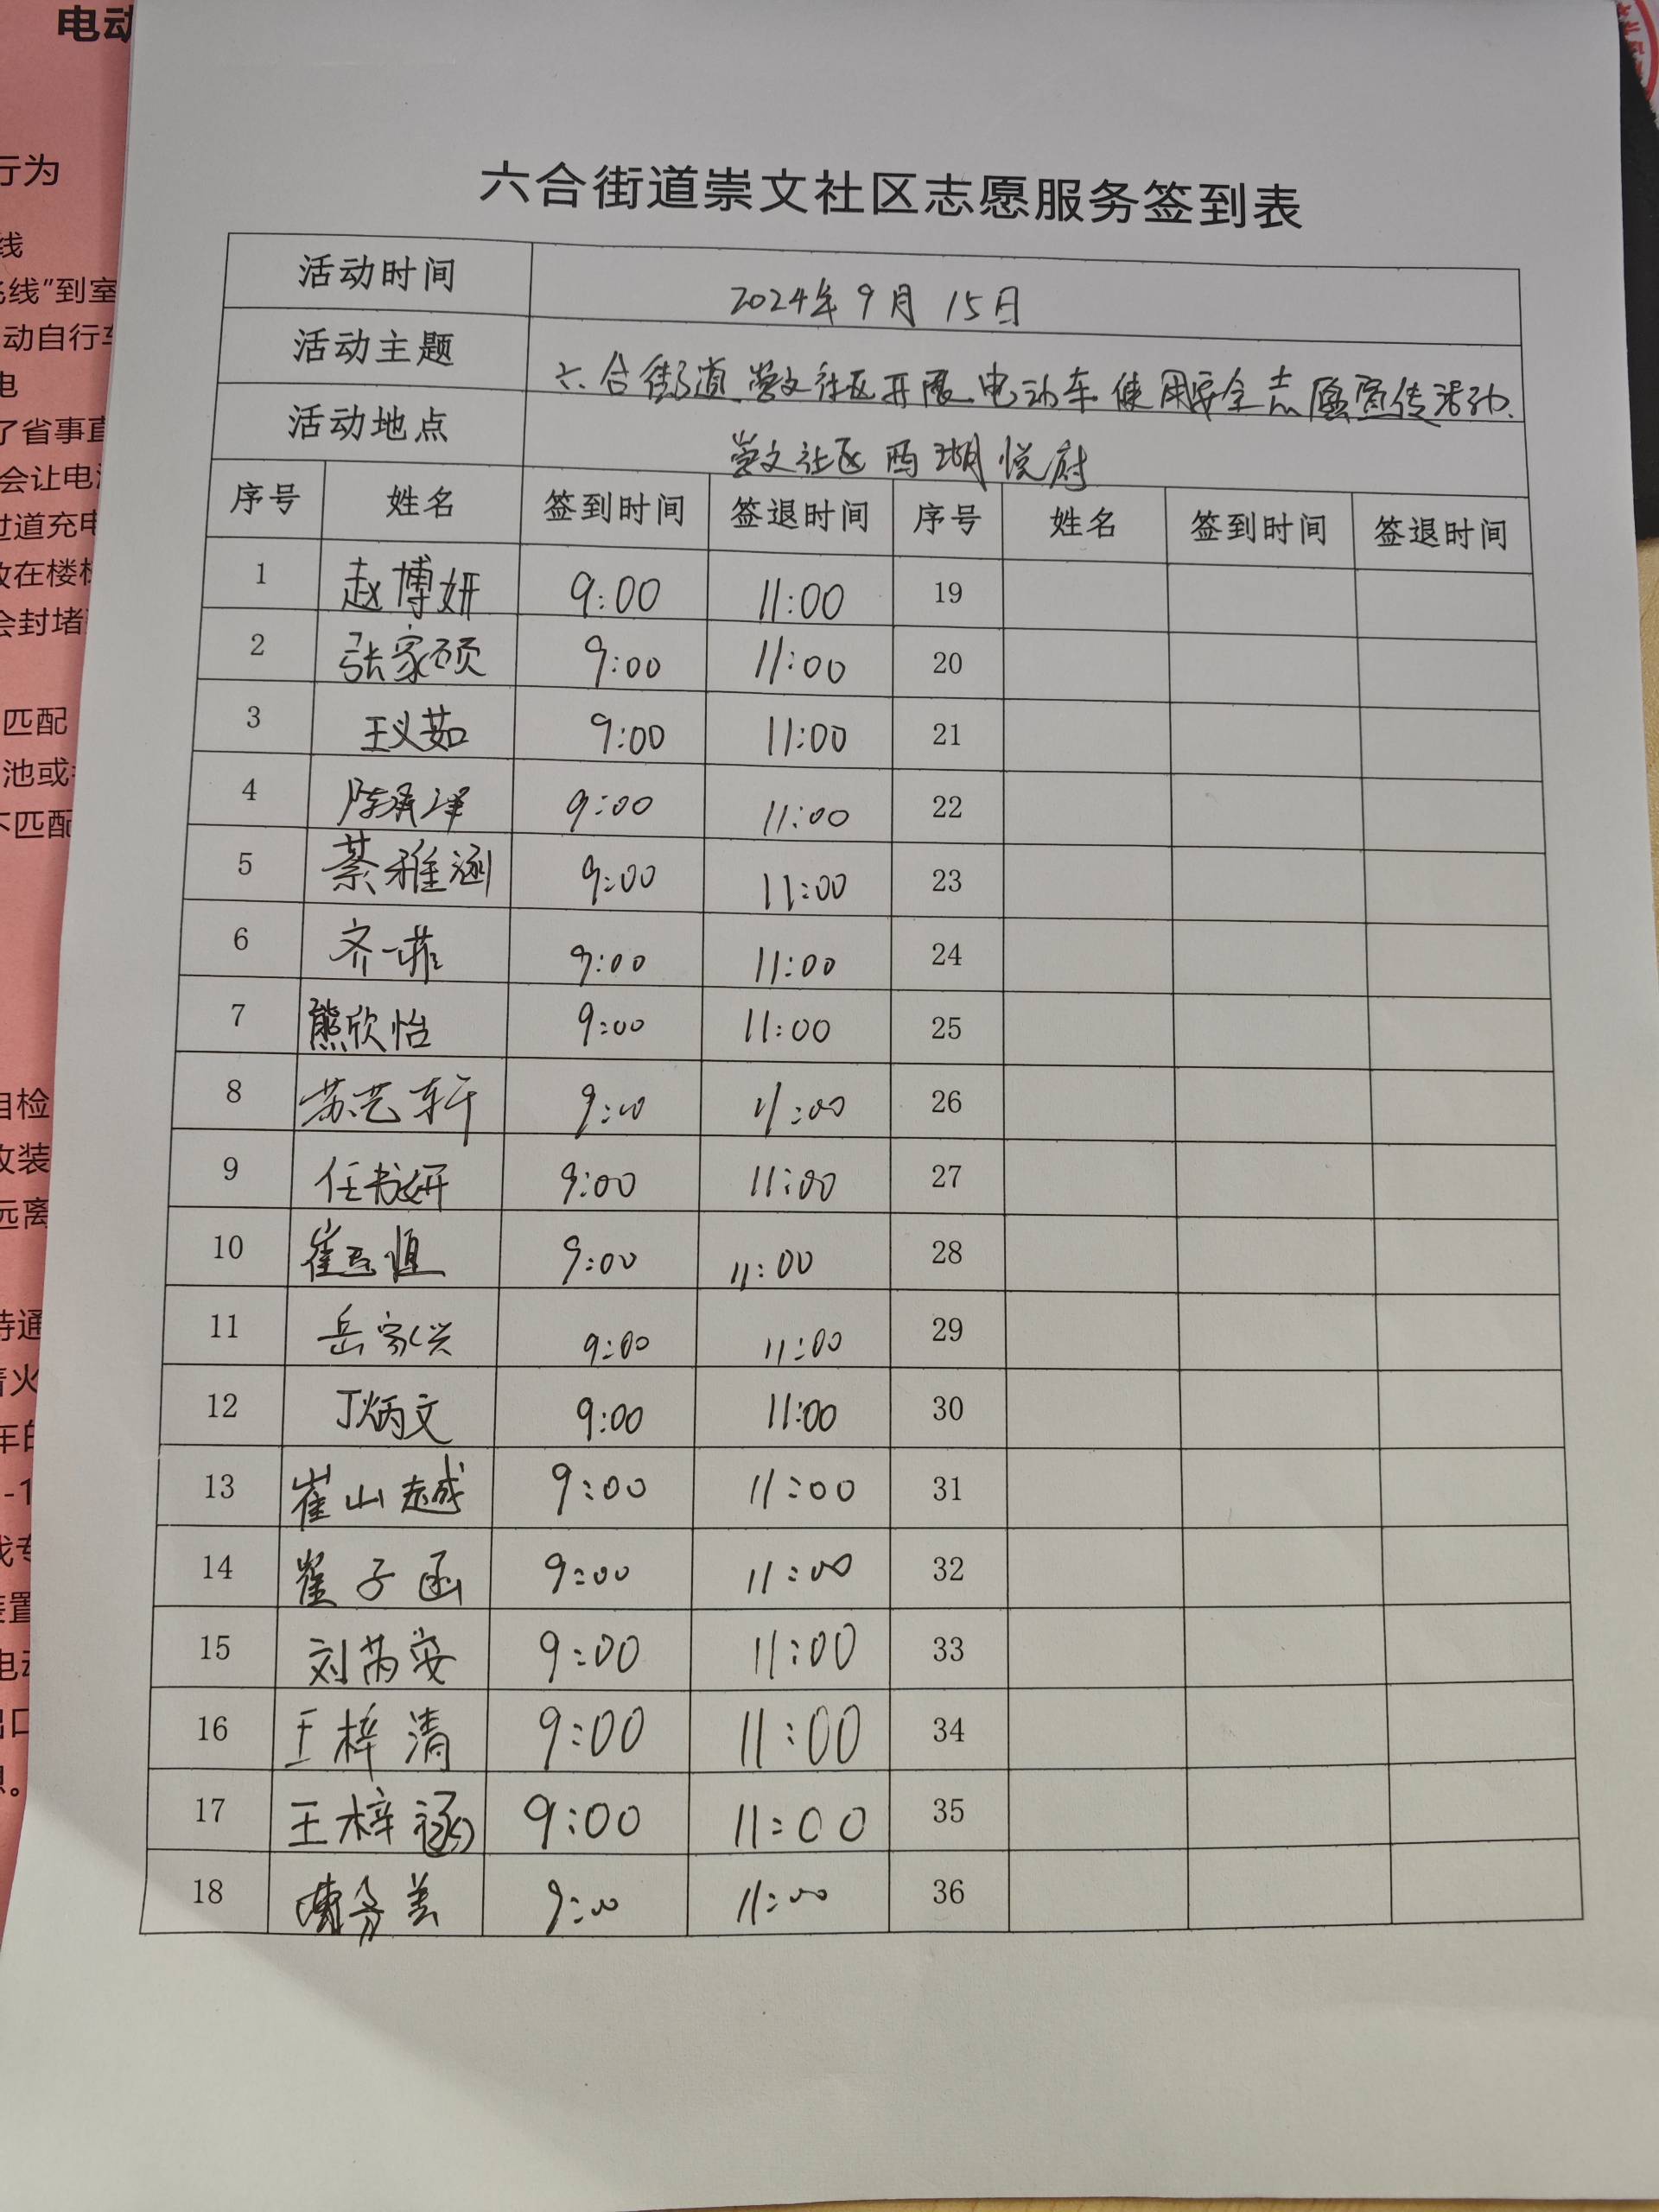 电动
行为
线
线”到室
动自行车
电
了省事直
会让电池
过道充电
放在楼梯
会封堵
匹配
池或
不匹配
自检
改装
远离
持通
着火
车的
-1
找专
装置
电动
出口
六合街道崇文社区志愿服务签到表
活动时间 2024年9月15日
活动主题 六合街道崇文社区开展电动车使用安全志愿宣传活动.
活动地点 崇文社区西湖悦府
序号 姓名 签到时间 签退时间 序号 姓名 签到时间 签退时间
1 赵博妍 9:00 11:00 19
2 张家硕 9:00 11:00 20
3 王义茹 9:00 11:00 21
4 陈 9:00 11:00 22
5 綦雅涵 9:00 11:00 23
6 齐一菲 9:00 11:00 24
7 熊欣怡 9:00 11:00 25
8 苏艺轩 9:00 11:00 26
9 任书妍 9:00 11:00 27
10 崔 9:00 11:00 28
11 岳家兴 9:00 11:00 29
12 丁炳文 9:00 11:00 30
13 崔山越 9:00 11:00 31
14 崔子函 9:00 11:00 32
15 刘芮安 9:00 11:00 33
16 王梓清 9:00 11:00 34
17 王梓涵 9:00 11:00 35
18 9:00 11:00 36